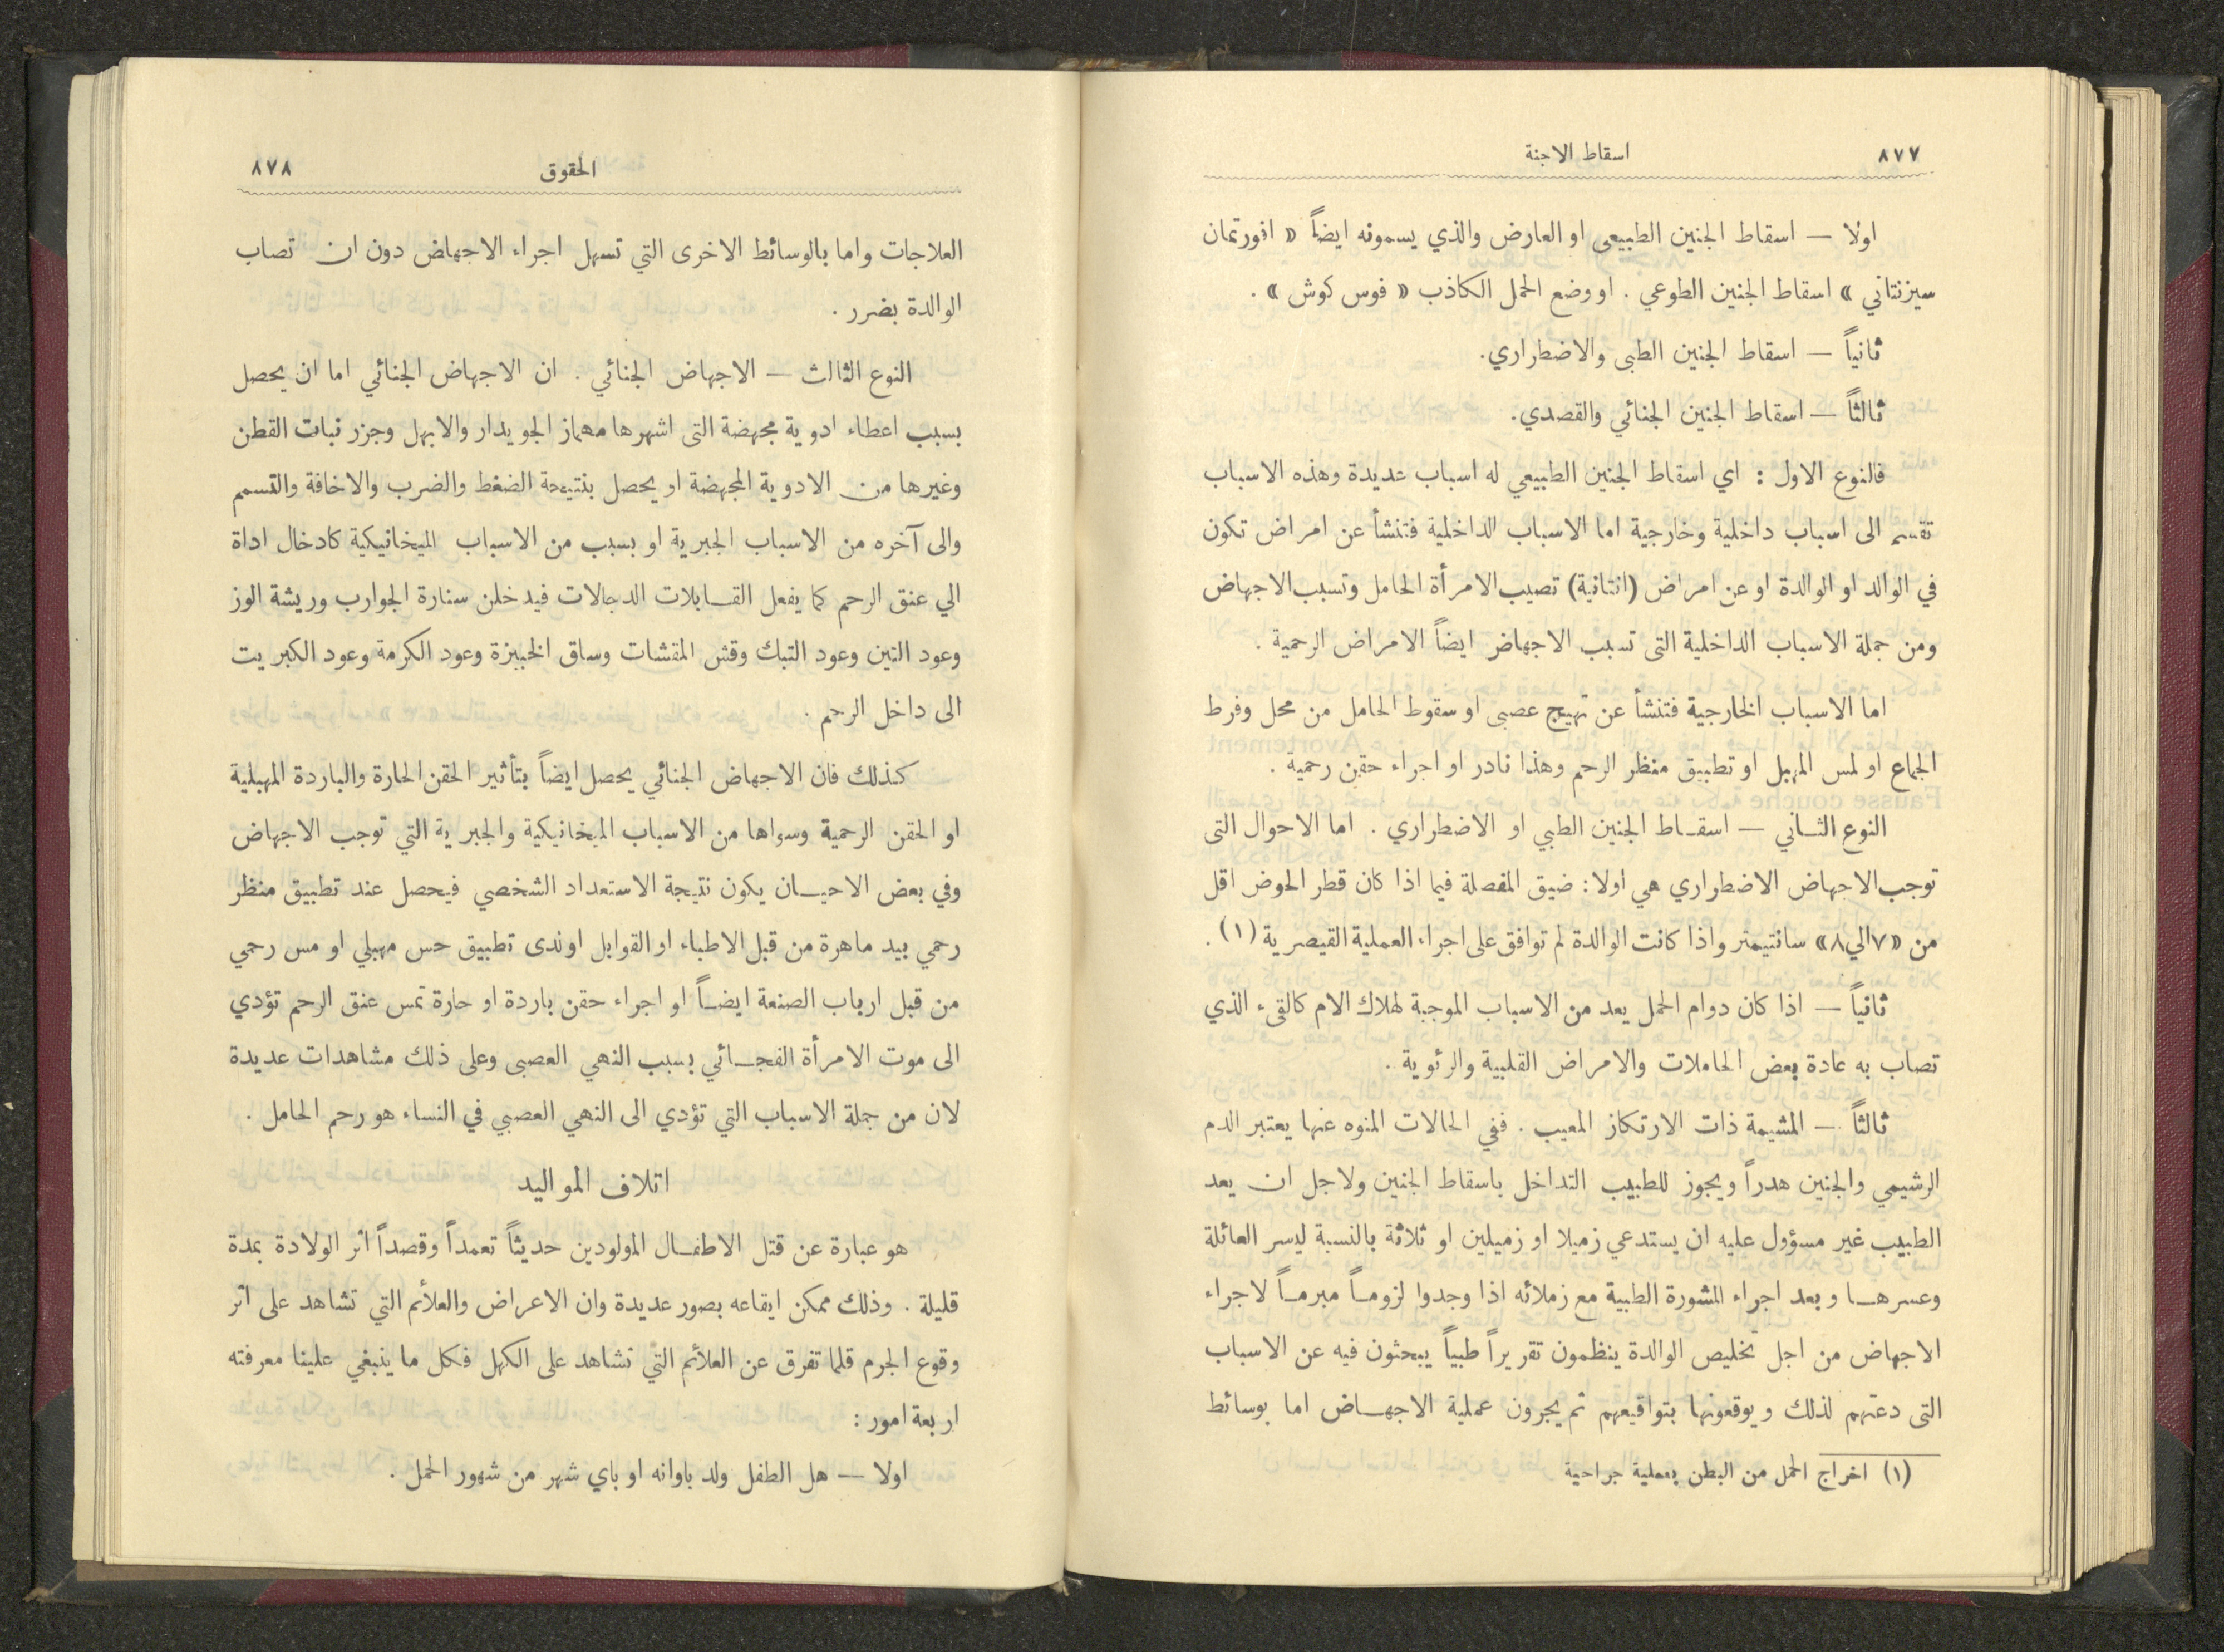 ٨٧٧
اسقاط الاجنة
اولا — اسقاط الجنين الطبيعي او العارض والذي يسمونه ايضاً « افورتمان
سيزنتاني » اسقاط الجنين الطوعي . او وضع الحمل الكاذب « فوس كوش » .
ثانياً — اسقاط الجنين الطبي والاضطراري.
ثالثاً — اسقاط الجنين الجنائي والقصدي.
فالنوع الاول : اي اسقاط الجنين الطبيعي له اسباب عديدة وهذه الاسباب
تقسم الى اسباب داخلية وخارجية اما الاسباب الداخلية فتنشأ عن امراض تكون
في الوالد او الوالدة او عن امراض (انتانية) تصيب الامرأة الحامل وتسبب الاجهاض
ومن جملة الاسباب الداخلية التى تسبب الاجهاض ايضاً الامراض الرحمية .
اما الاسباب الخارجية فتنشأ عن تهيج عصبى او سقوط الحامل من محل وفرط
الجماع او لمس المهبل او تطبيق منظر الرحم وهذا نادر او اجراء حقن رحمية .
النوع الثـاني — اسقـاط الجنين الطبي او الاضطراري . اما الاحوال التى
توجب الاجهاض الاضطراري هي اولا : ضيق المفصلة فيما اذا كان قطر الحوض اقل
من «٧الي٨» سانتيمتر واذا كانت الوالدة لم توافق على اجراء العملية القيصرية (١) .
ثانياً — اذا كان دوام الحمل يعد من الاسباب الموجبة لهلاك الام كالقىء الذي
تصاب به عادة بعض الحاملات والامراض القلبية والرئوية .
ثالثاً — المشيمة ذات الارتكاز المعيب . ففي الحالات المنوه عنها يعتبر الدم
الرشيمي والجنين هدراً ويجوز للطبيب التداخل باسقاط الجنين ولاجل ان يعد
الطبيب غير مسؤول عليه ان يستدعي زميلا او زميلين او ثلاثة بالنسبة ليسر العائلة
وعسرهـا وبعد اجراء المشورة الطبية مع زملائه اذا وجدوا لزومـاً مبرمـاً لاجراء
الاجهاض من اجل تخليص الوالدة ينظمون تقريراً طبياً يبحثون فيه عن الاسباب
التى دعتهم لذلك ويوقعونها بتواقيعهم ثم يجرون عملية الاجهـاض اما بوسائط
(١) اخراج الحمل من البطن بعملية جراحية
الحقوق
٨٧٨
العلاجات واما بالوسائط الاخرى التي تسهل اجراء الاجهاض دون ان تصاب
الوالدة بضرر .
النوع الثالث — الاجهاض الجنائي . ان الاجهاض الجنائي اما ان يحصل
بسبب اعطاء ادوية مجهضة التى اشهرها مهماز الجويدار والابهل وجزر نبات القطن
وغيرها من الادوية المجهضة او يحصل بنتيجة الضغط والضرب والاخافة والتسمم
والى آخره من الاسباب الجبرية او بسبب من الاسباب الميخانيكية كادخال اداة
الي عنق الرحم كما يفعل القـابلات الدجالات فيدخلن سنارة الجوارب وريشة الوز
وعود التين وعود التبك وقش المقشات وساق الخبيزة وعود الكرمة وعود الكبريت
الى داخل الرحم .
كذلك فان الاجهاض الجنائي يحصل ايضاً بتأثير الحقن الحارة والباردة المهبلية
او الحقن الرحمية وسواها من الاسباب الميخانيكية والجبرية التي توجب الاجهاض
وفي بعض الاحيـان يكون نتيجة الاستعداد الشخصي فيحصل عند تطبيق منظر
رحمي بيد ماهرة من قبل الاطباء او القوابل اوندى تطبيق حس مهبلي او مس رحمي
من قبل ارباب الصنعة ايضـاً او اجراء حقن باردة او حارة تمس عنق الرحم تؤدي
الى موت الامرأة الفجـائي بسبب النهي العصبى وعلى ذلك مشاهدات عديدة
لان من جملة الاسباب التي تؤدي الى النهي العصبي في النساء هو رحم الحامل .
اتلاف المواليد
هو عبارة عن قتل الاطفـال المولودين حديثاً تعمداً وقصداً اثر الولادة بمدة
قليلة . وذلك ممكن ايقاعه بصور عديدة وان الاعراض والعلائم التي تشاهد على اثر
وقوع الجرم قلما تفرق عن العلائم التي تشاهد على الكهل فكل ما ينبغي علينا معرفته
اربعة امور :
اولا — هل الطفل ولد باوانه او باي شهر من شهور الحمل .